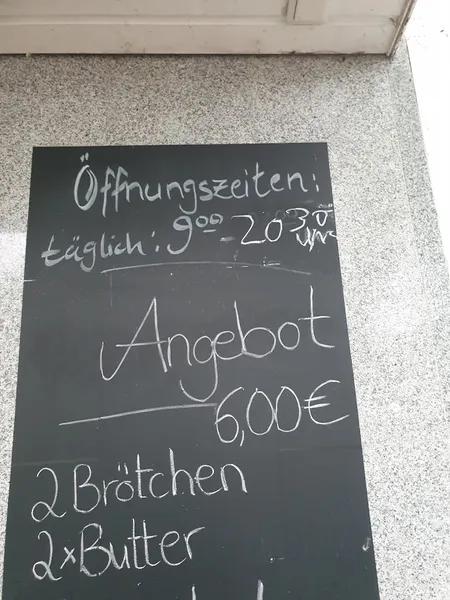 Öffnungszeiten:
täglich: 9⁰⁰ - 20³⁰ Uhr
Angebot
6,00€
2 Brötchen
2xButter